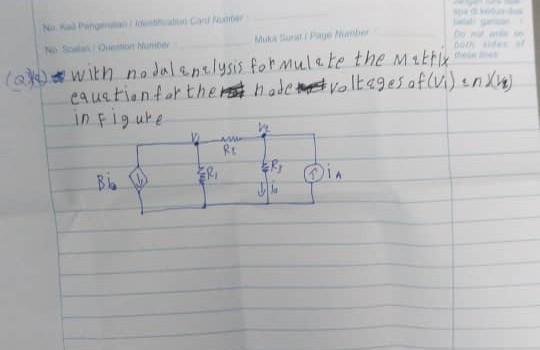 No. Kad Pengenalan / Identification Card Number
No. Soalan / Question Number
Muka Surat / Page Number
Do not write on
both sides of
these lines
(Q3) with nodal analysis formulate the Mattix
equation for the node voltages of (V1) and (V2)
in Figure
V1
V2
R2
Bio
R1
R3
io
iA